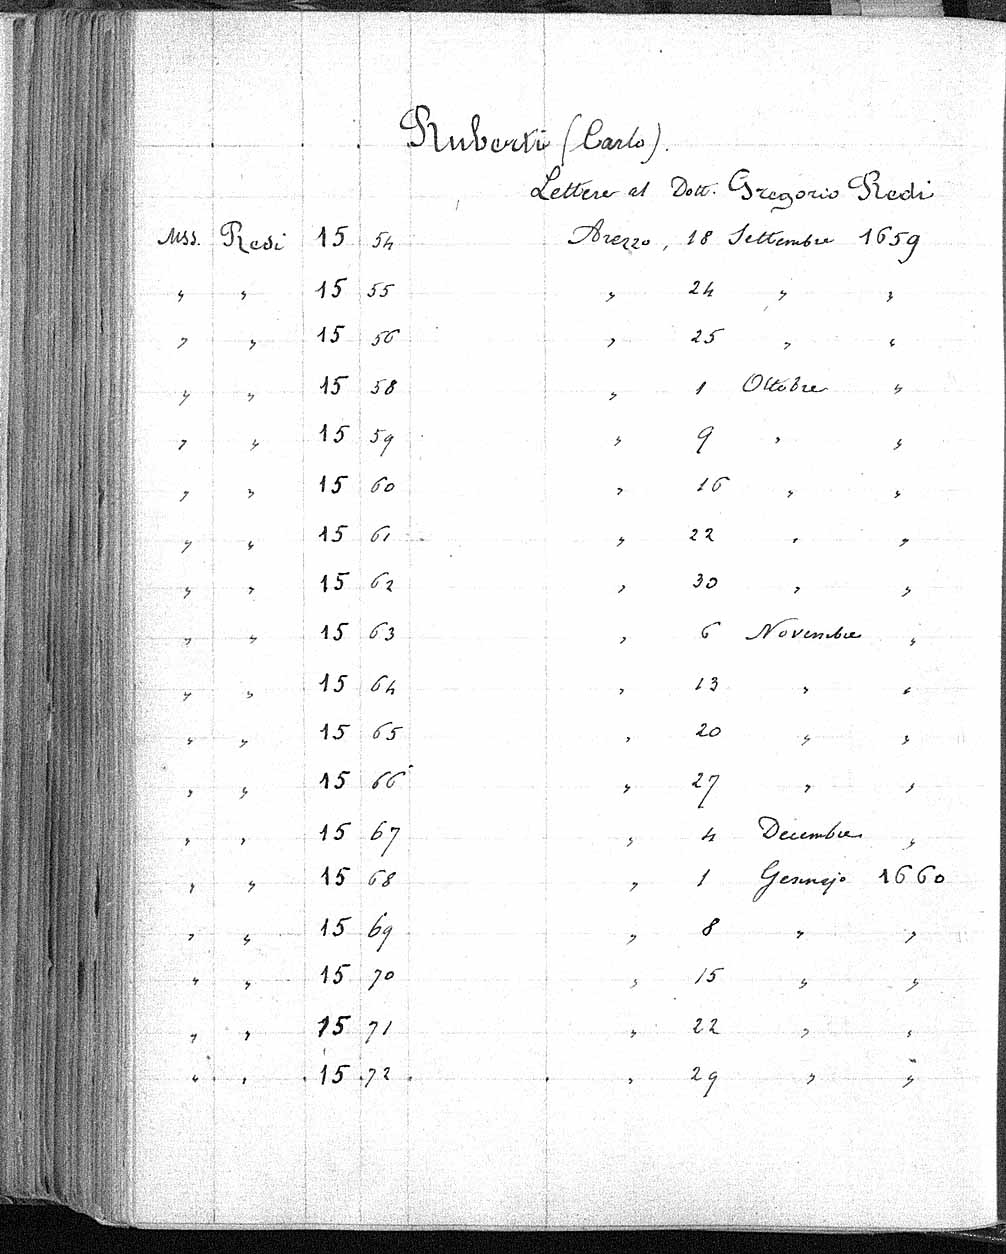 Ruberti (Carlo).
Lettere al Dott. Gregorio Redi
Mss. Redi 15 54 Arezzo, 18 Settembre 1659
" " 15 55 " 24 " "
" " 15 56 " 25 " "
" " 15 58 " 1 Ottobre "
" " 15 59 " 9 " "
" " 15 60 " 16 " "
" " 15 61 " 22 " "
" " 15 62 " 30 " "
" " 15 63 " 6 Novembre "
" " 15 64 " 13 " "
" " 15 65 " 20 " "
" " 15 66 " 27 " "
" " 15 67 " 4 Decembre "
" " 15 68 " 1 Gennajo 1660
" " 15 69 " 8 " "
" " 15 70 " 15 " "
" " 15 71 " 22 " "
" " 15 72 " 29 " "